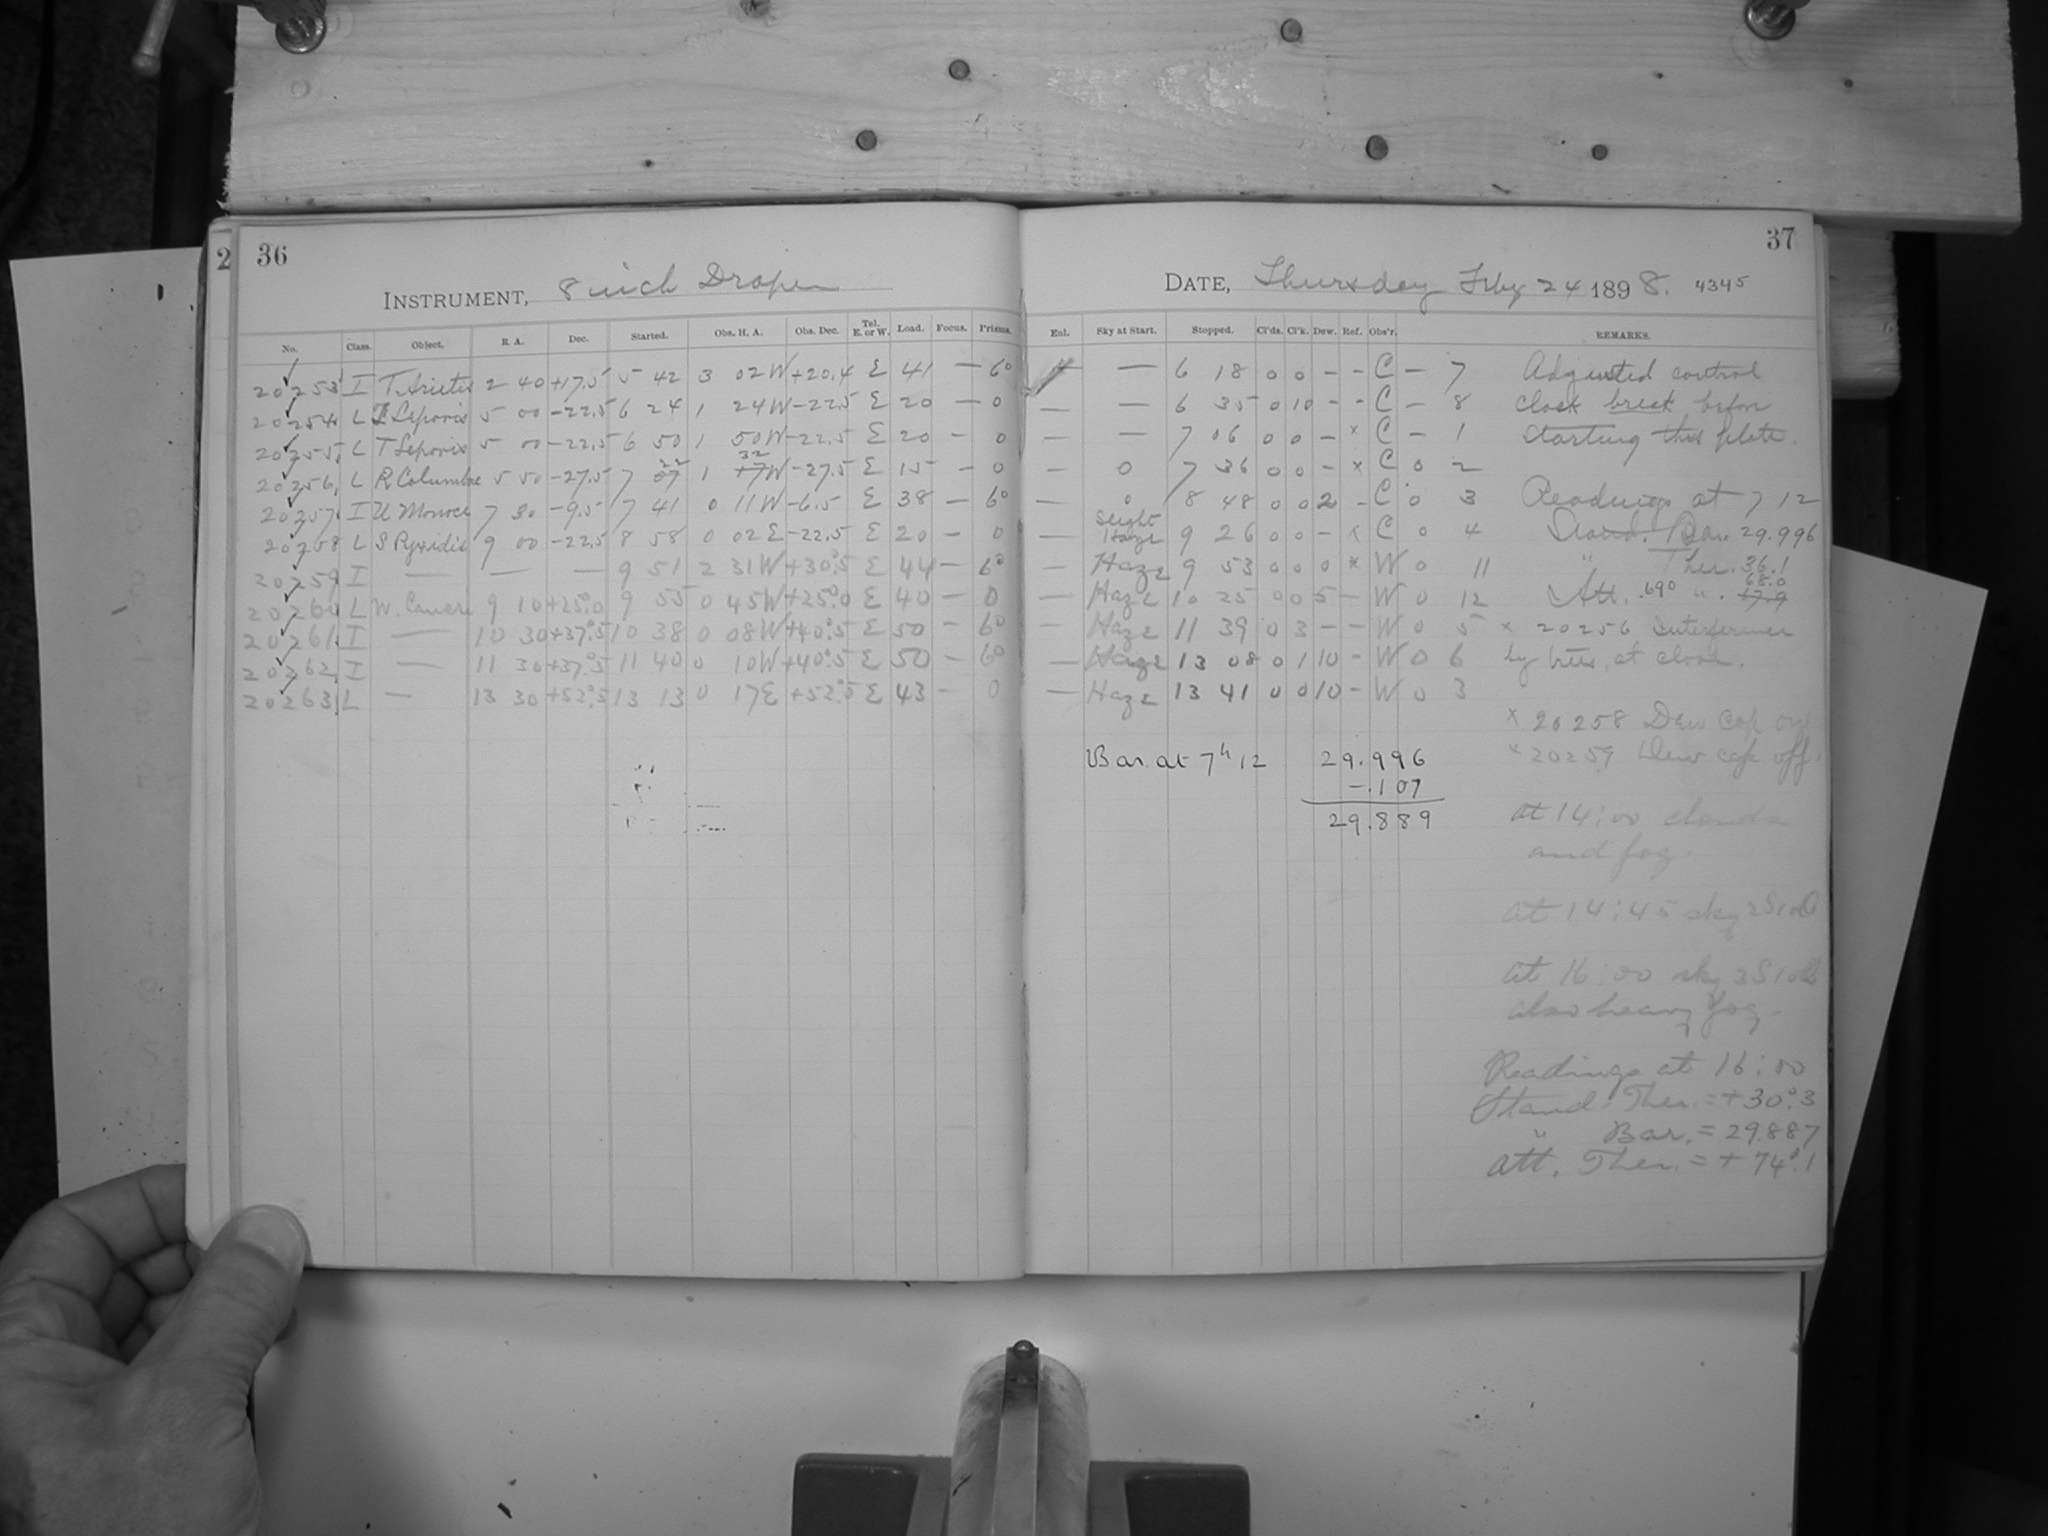 2
36
37
INSTRUMENT, 8 inch Draper
DATE, Thursday Feby 24 1898. 4345
No. Class. Object. R. A. Dec. Started. Obs. H. A. Obs. Dec. Tel. E. or W. Load. Focus. Prisms. Enl. Sky at Start. Stopped. Cl'ds. Cl'k. Dew. Ref. Obs'r. REMARKS.
20253 I T. Arietis 2 40 +17.5 5 42 3 02 W +20.4 E 41 — 6° — 6 18 0 0 - - C — 7 Adjusted control
20254 L Leporis 5 00 -22.5 6 24 1 24 W -22.5 E 20 — 0 — — 6 35 0 10 - - C — 8 clock break before
20255 L T Leporis 5 00 -22.5 6 50 1 50 W -22.5 E 20 — 0 — — 7 06 0 0 - x C — 1 starting this plate.
20256 L R Columbae 5 50 -27.5 7 22 1 32 W -27.5 E 15 — 0 — 0 7 36 0 0 - x C 0 2
20257 I U Monoce 7 30 -9.5 7 41 0 11 W -6.5 E 38 — 6° — 0 8 48 0 0 2 - C 0 3 Readings at 7 12
20258 L S Pyxidis 9 00 -22.5 8 58 0 02 E -22.5 E 20 — 0 — Slight Haze 9 26 0 0 - x C 0 4 Stand. Bar. 29.996
20259 I — — — 9 51 2 31 W +30°.5 E 44 — 6° — Haze 9 53 0 0 0 x W 0 11 " Ther. 36.1
20260 L W. Cancri 9 10 +25°.0 9 55 0 45 W +25°.0 E 40 — 0 — Haze 10 25 0 0 5 - W 0 12 Att. .690 " 68.0 67.9
20261 I — 10 30 +37°.5 10 38 0 08 W +40°.5 E 50 — 6° — Haze 11 39 0 3 - - W 0 5 x 20256 Interference
20262 I — 11 30 +37°.5 11 40 0 10 W +40°.5 E 50 — 6° — Haze 13 08 0 1 10 - W 0 6 by trees, at close.
20263 L — 13 30 +52°.5 13 13 0 17 E +52°.5 E 43 — 0 — Haze 13 41 0 0 10 - W 0 3
x 20258 Dew Cap on
x 20259 Dew cap off.
Bar. at 7h 12 29.996
-.107
29.889
at 14:00 clouds
and fog.
at 14:45 sky
at 16:00 sky
also heavy fog.
Readings at 16:00
Stand. Ther. = +30°.3
" Bar. = 29.887
Att. Ther. = +74°.1